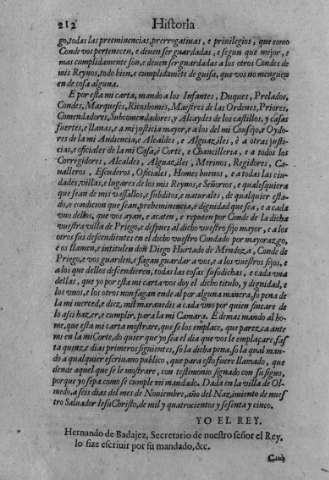 212 Historia
go, todas las preeminencias, prerrogatiuas, e priuilegios, que como
Conde vos pertenecen, e deuen ser guardadas, e segun que mejor, e
mas cumplidamente son, e deuen ser guardadas a los otros Condes de
mis Reynos, todo bien, e cumplidamēte de guisa, que vos no mengue
en de cosa alguna.
E por esta mi carta, mando a los Infantes, Duques, Prelados,
Condes, Marqueses, Ricoshomes, Maestres de las Ordenes, Priores,
Comendadores, Subcomendadores, y Alcaydes de los castillos, y casas
fuertes, e llanas, e a mi justicia mayor, e a los del mi Consejo, e Oydo-
res de la mi Audiencia, e Alcaldes, e Alguaziles, e a otras justi-
cias, e oficiales de la mi Casa, e Corte, e Chancilleria, e a todos los
Corregidores, Alcaldes, Alguaziles, Merinos, Regidores, Ca-
ualleros, Escuderos, Oficiales, Homes buenos, e a todas las ciu-
dades, villas, e lugares de los mis Reynos, e Señorios, e qualesquiera
que sean de mis vassallos, e subditos, e naturales, de qualquier esta-
do, e condicion que sean, prehemenencia, e dignidad que sea, e a cada
vno dellos, que vos ayan, e acaten, e reputen por Conde de la dicha
vuestra villa de Priego, e despues al dicho vuestro fijo mayor, e a los
otros sus descendientes en el dicho vuestro Condado por mayorazgo,
e os llamen, e intitulen don Diego Hurtado de Mendoza, Conde de
Priego, e vos guarden, e fagan guardar a vos, e a los vuestros fijos, e
a los que dellos descendieren, todas las cosas susodichas, e cada vna
dellas, que yo por esta mi carta vos doy el dicho titulo, y dignidad, e
los vnos, e los otros non fagan ende al por alguna manera, so pena de
la mi merced, e diez mil marauedis a cada vno por quien fincare de
lo assi hazer, e cumplir, para la mi Camara. E demas mando al ho-
me, que esta mi carta mostrare, que se los emplace, que parezca ante
mi en la mi Corte, do quier que yo sea el dia que vos le emplaçare, fas-
ta quinze dias primeros siguientes, so la dicha pena, so la qual man-
do a qualquier escriuano publico, que para esto fuere llamado, que
dende aquel que se le mostrare, con testimonio signado con su signo,
por que yo sepa como se cumple mi mandado. Dada en la villa de Ol-
medo, a seis dias del mes de Nouiembre, año del Nazimiento de nues-
tro Saluador Iesu Christo, de mil y quatrocientos y sesenta y cinco.
YO EL REY.
Hernando de Badajez, Secretario de nuestro señor el Rey.
lo fize escriuir por su mandado, &c.